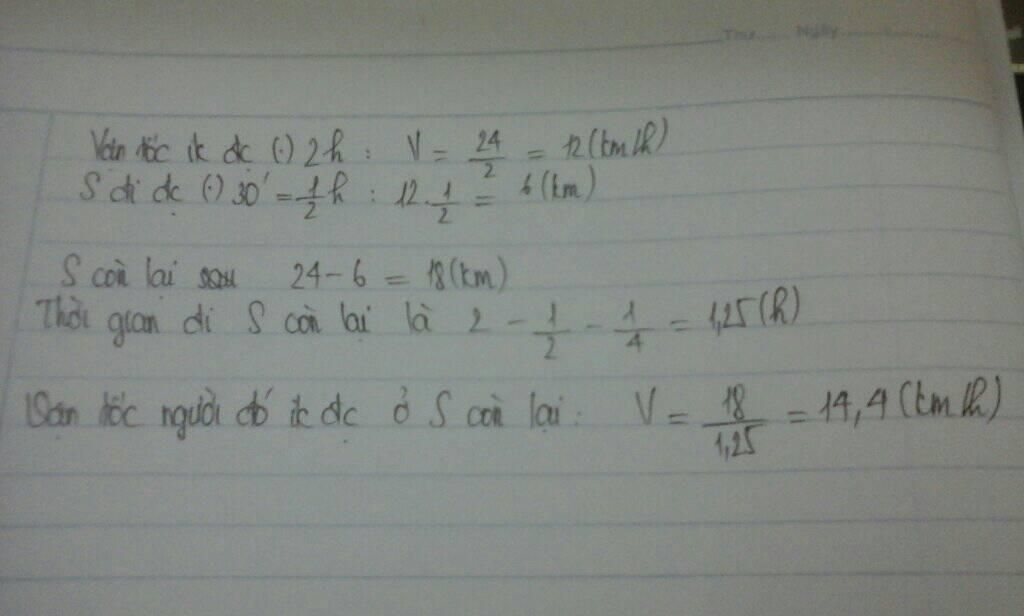 Thứ Ngày
Vận tốc đc (.) 2h : V = 24/2 = 12 (km/h)
S đi đc (.) 30' = 1/2 h : 12 . 1/2 = 6 (km)
S còn lại sau 24 - 6 = 18 (km)
Thời gian đi S còn lại là 2 - 1/2 - 1/4 = 1,25 (h)
Vận tốc người đó đc ở S còn lại : V = 18/1,25 = 14,4 (km/h)